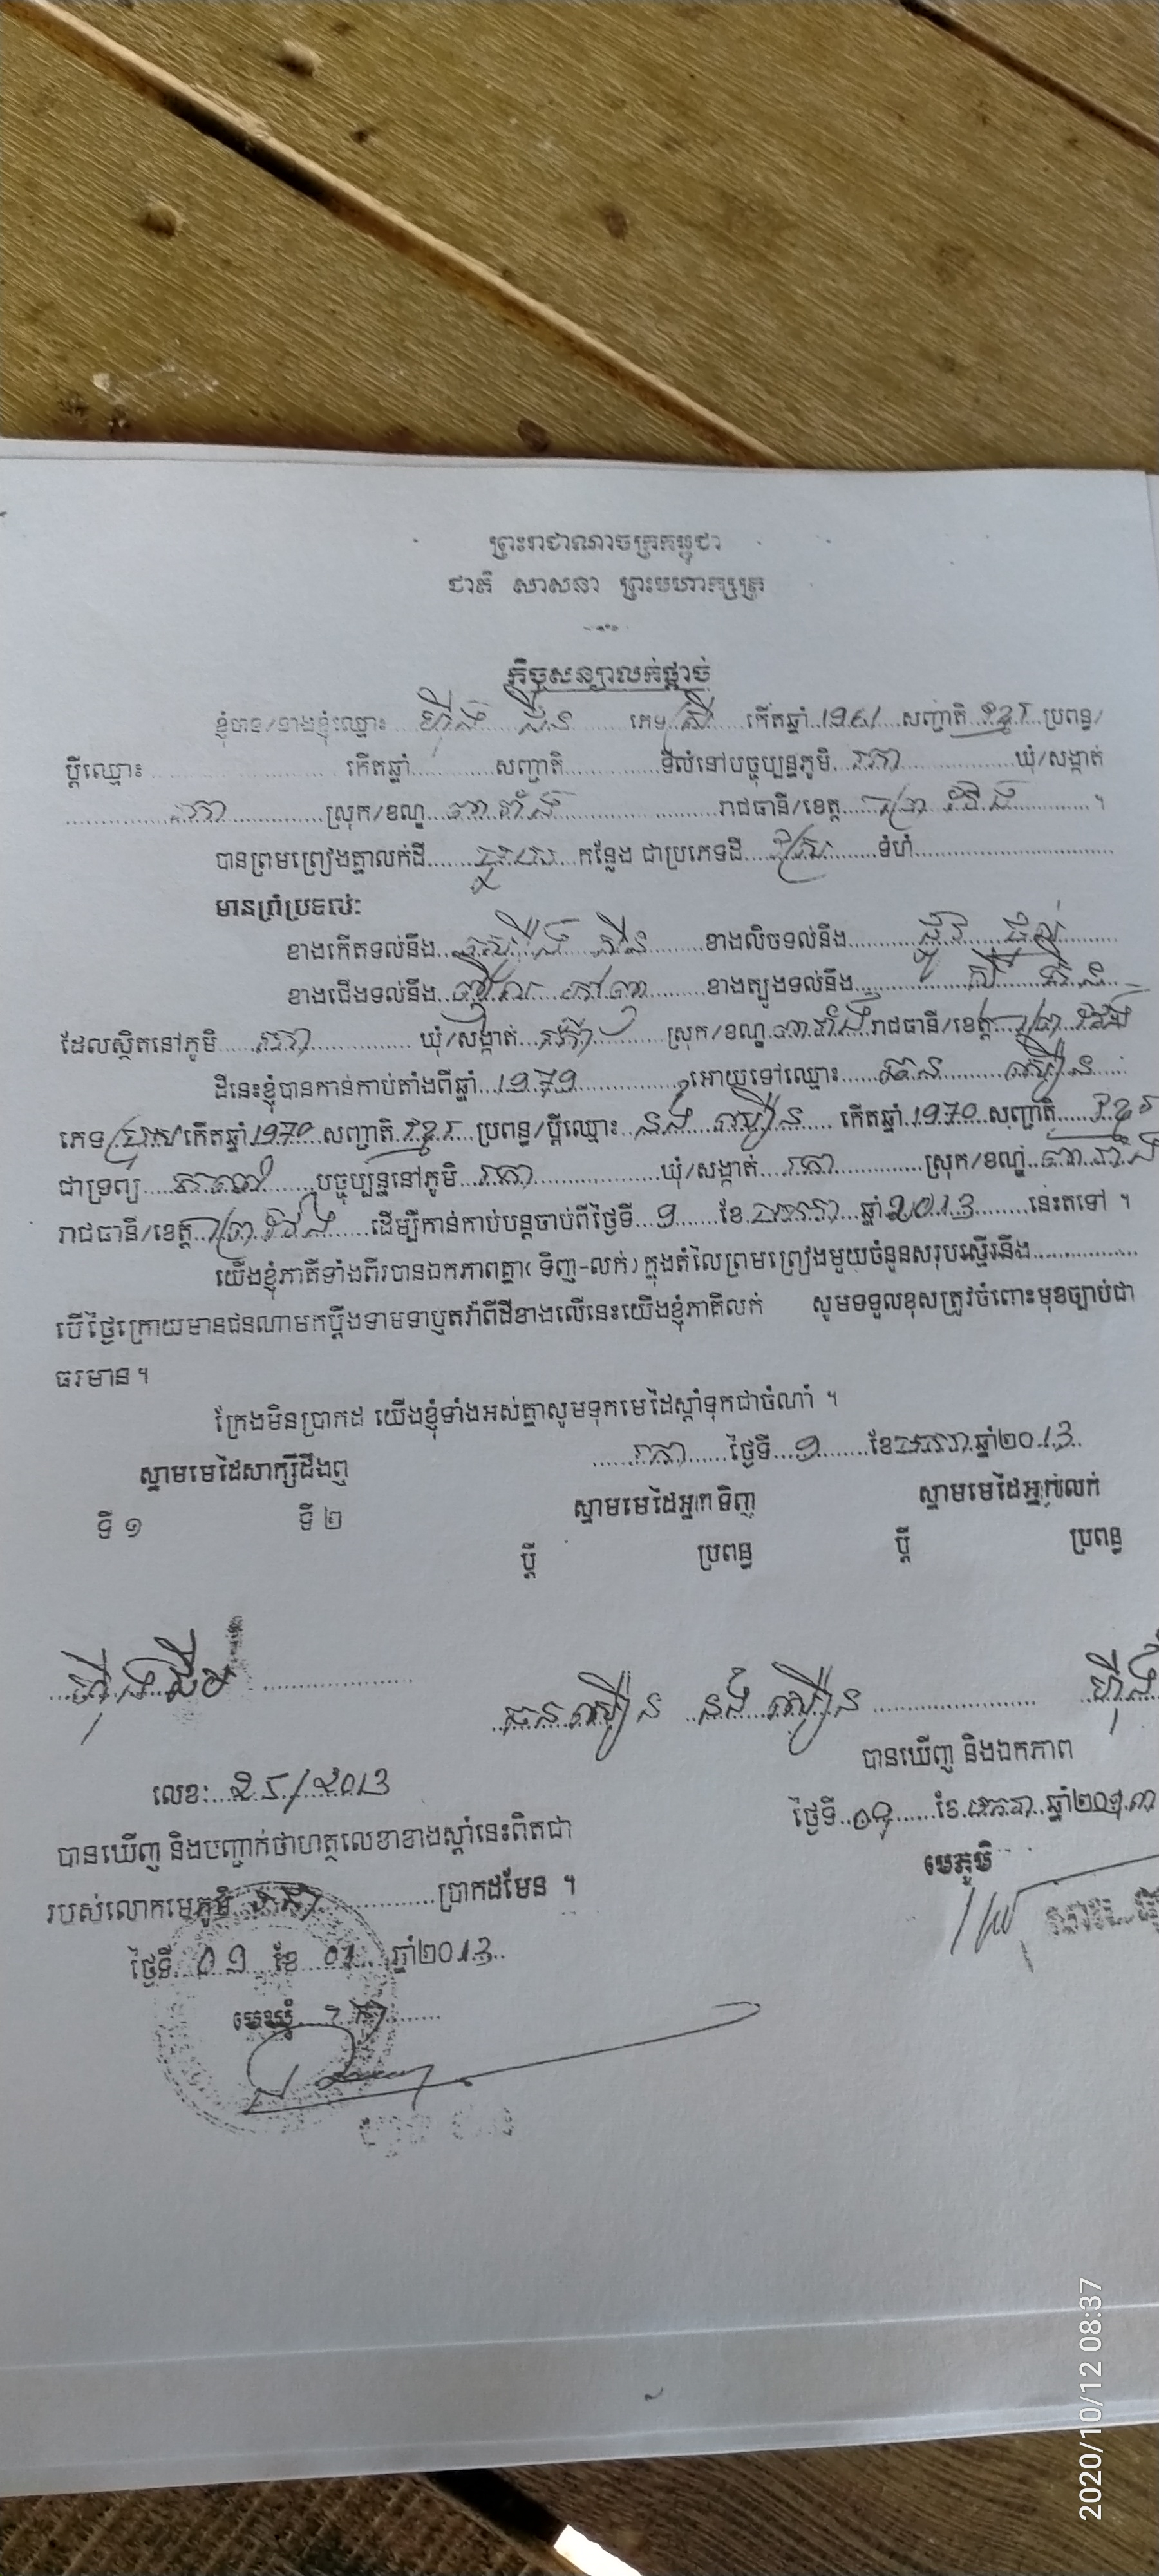 ព្រះរាជាណាចក្រកម្ពុជា
ជាតិ សាសនា ព្រះមហាក្សត្រ
កិច្ចសន្យាលក់ផ្តាច់
ខ្ញុំបាទ/នាងខ្ញុំឈ្មោះ ហ៊ីង ភេទ ស្រី កើតឆ្នាំ 1961 សញ្ជាតិ ខ្មែរ ប្រពន្ធ/
ប្តីឈ្មោះ កើតឆ្នាំ សញ្ជាតិ ទីលំនៅបច្ចុប្បន្នភូមិ រកា ឃុំ/សង្កាត់
រកា ស្រុក/ខណ្ឌ ពារាំង រាជធានី/ខេត្ត ព្រៃវែង ។
បានព្រមព្រៀងគ្នាលក់ដី កន្លែង ជាប្រភេទដី ស្រែ ទំហំ
មានព្រំប្រទល់:
ខាងកើតទល់នឹង ខាងលិចទល់នឹង ផ្លូវ
ខាងជើងទល់នឹង ខាងត្បូងទល់នឹង
ដែលស្ថិតនៅភូមិ រកា ឃុំ/សង្កាត់ រកា ស្រុក/ខណ្ឌ ពារាំង រាជធានី/ខេត្ត ព្រៃវែង
ដីនេះខ្ញុំបានកាន់កាប់តាំងពីឆ្នាំ 1979 អោយទៅឈ្មោះ ឿន
ភេទ ប្រុស កើតឆ្នាំ 1970 សញ្ជាតិ ខ្មែរ ប្រពន្ធ/ប្តីឈ្មោះ នង់ ឿន កើតឆ្នាំ 1970 សញ្ជាតិ ខ្មែរ
ជាទ្រព្យ បច្ចុប្បន្ននៅភូមិ រកា ឃុំ/សង្កាត់ រកា ស្រុក/ខណ្ឌ ពារាំង
រាជធានី/ខេត្ត ព្រៃវែង ដើម្បីកាន់កាប់បន្តចាប់ពីថ្ងៃទី ១ ខែ មករា ឆ្នាំ 2013 នេះតទៅ ។
យើងខ្ញុំភាគីទាំងពីរបានឯកភាពគ្នា( ទិញ-លក់ ) ក្នុងតំលៃព្រមព្រៀងមួយចំនួនសរុបស្មើរនឹង
បើថ្ងៃក្រោយមានជនណាមកប្តឹងទាមទាឬតវ៉ាពីដីខាងលើនេះយើងខ្ញុំភាគីលក់ សូមទទួលខុសត្រូវចំពោះមុខច្បាប់ជា
ធរមាន ។
ក្រែងមិនប្រាកដ យើងខ្ញុំទាំងអស់គ្នាសូមទុកមេដៃស្តាំទុកជាចំណាំ ។
រកា ថ្ងៃទី ១ ខែ មករា ឆ្នាំ២០13
ស្នាមមេដៃសាក្សីដឹងឮ ស្នាមមេដៃអ្នកទិញ ស្នាមមេដៃអ្នកលក់
ទី ១ ទី ២ ប្តី ប្រពន្ធ ប្តី ប្រពន្ធ
ហ៊ីង ឿន នង់ ឿន ហ៊ីង
បានឃើញ និងឯកភាព
លេខ: 25/2013
ថ្ងៃទី ខែ ឆ្នាំ២០១៣
បានឃើញ និងបញ្ជាក់ថាហត្ថលេខាខាងស្តាំនេះពិតជា
មេភូមិ
របស់លោកមេភូមិ រកា ប្រាកដមែន ។
ថ្ងៃទី ០១ ខែ 01 ឆ្នាំ២០13
មេឃុំ រកា
2020/10/12 08:37